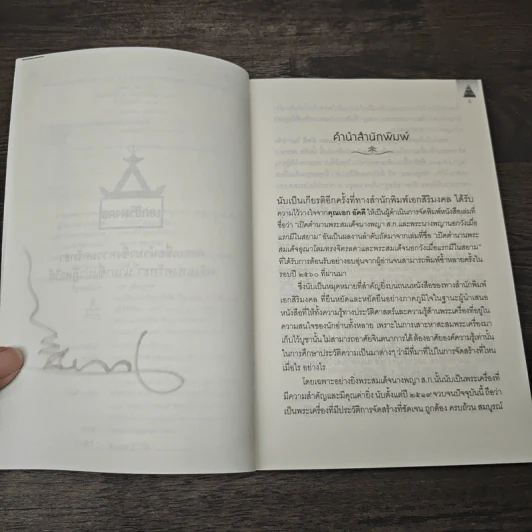 คำนำสำนักพิมพ์
นับเป็นเกียรติอีกครั้งที่ทางสำนักพิมพ์เอกสิริมงคล ได้รับ
ความไว้วางใจจากคุณเอก อัคคี ให้เป็นผู้ดำเนินการจัดพิมพ์หนังสือเล่มที่
ชื่อว่า "เปิดตำนานพระสมเด็จนางพญา ส.ก.และพระนางพญานอกวังเมื่อ
แรกมีในสยาม" อันเป็นผลงานลำดับถัดมาจากเล่มที่ชื่อ "เปิดตำนานพระ
สมเด็จอุณาโลมทรงจิตรลดาและพระสมเด็จนอกวังเมื่อแรกมีในสยาม"
ที่ได้รับการต้อนรับอย่างอบอุ่นจากผู้อ่านจนสามารถพิมพ์ซ้ำหลายครั้งใน
รอบปี ๒๕๖๐ ที่ผ่านมา
ซึ่งนับเป็นหมุดหมายที่สำคัญยิ่งบนถนนหนังสือของทางสำนักพิมพ์
เอกสิริมงคล ที่ยืนหยัดและหยัดยืนอย่างภาคภูมิใจในฐานะผู้นำเสนอ
หนังสือที่ให้ทั้งความรู้ทางประวัติศาสตร์และความรู้ด้านพระเครื่องที่อยู่ใน
ความสนใจของนักอ่านทั้งหลาย เพราะในการเสาะหาสะสมพระเครื่องมา
เก็บไว้บูชานั้น ไม่สามารถอาศัยจินตนาการได้ ต้องอาศัยองค์ความรู้เท่านั้น
ในการศึกษาประวัติความเป็นมาต่างๆ ว่ามีที่มาที่ไปในการจัดสร้างที่ไหน
เมื่อไร อย่างไร
โดยเฉพาะอย่างยิ่งพระสมเด็จนางพญา ส.ก.นั้นนับเป็นพระเครื่องที่
มีความสำคัญและมีคุณค่ายิ่ง นับตั้งแต่ปี ๒๕๑๙ จวบจนปัจจุบันนี้ ถือว่า
เป็นพระเครื่องที่มีประวัติการจัดสร้างที่ชัดเจน ถูกต้อง ครบถ้วน สมบูรณ์